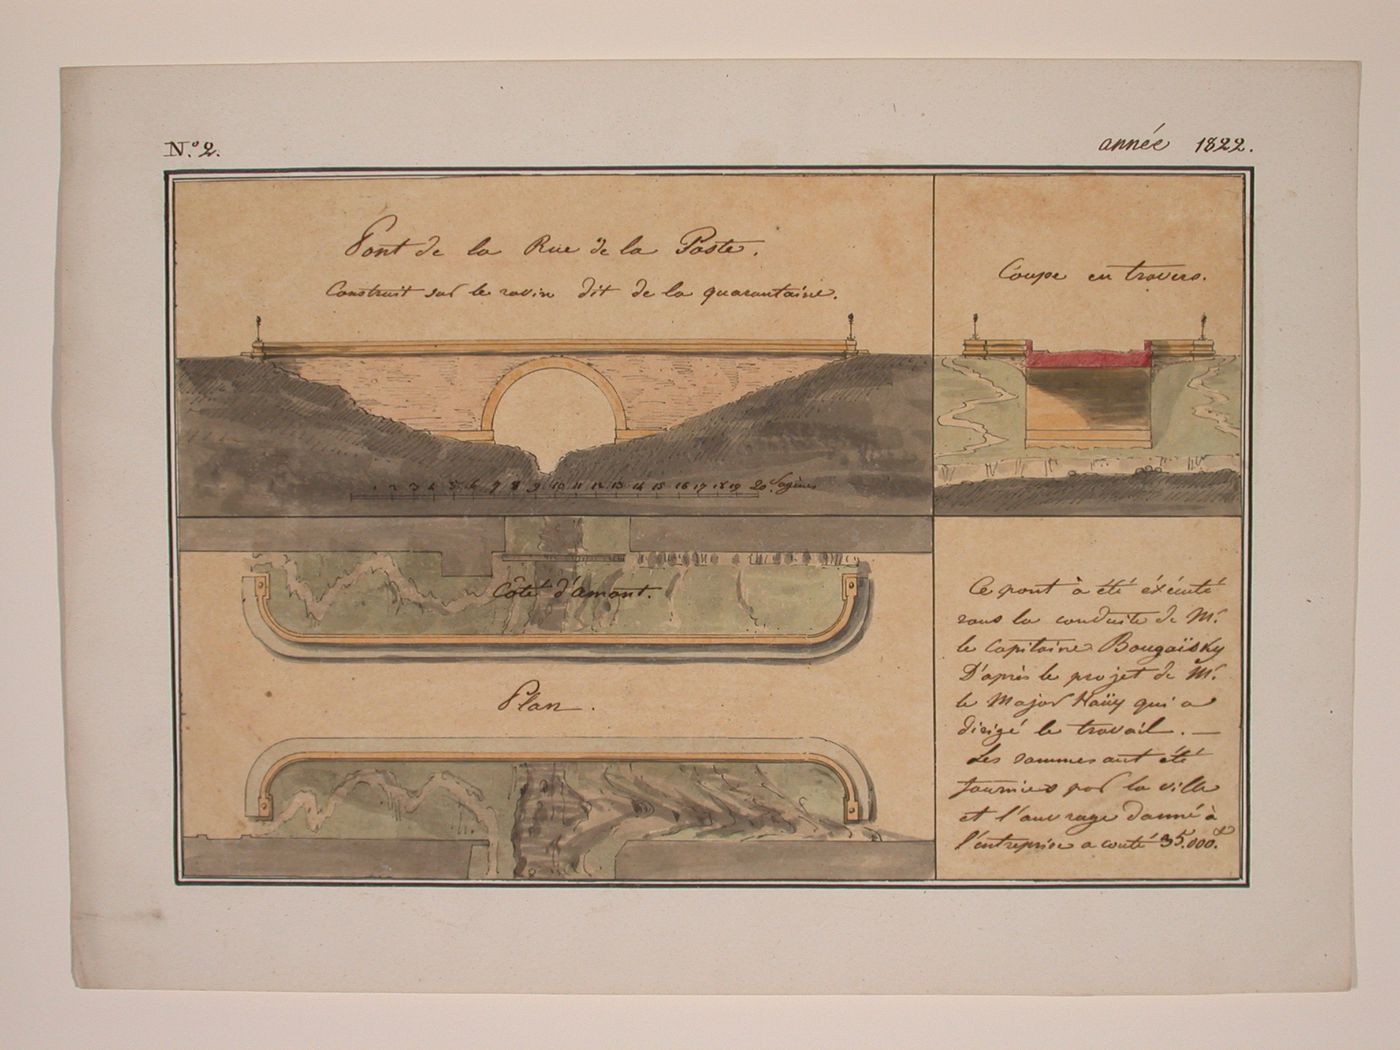 N.º 2.
année 1822.
Pont de la Rue de la Poste.
Construit sur le ravin dit de la quarantaine.
Coupe en travers.
1 2 3 4 5 6 7 8 9 10 11 12 13 14 15 16 17 18 19 20. Sagènes
Côté d'amont.
Plan.
Ce pont à été éxécuté
sous la conduite de Mr.
le Capitaine Bougaïsky
D'après le projet de Mr.
le Major Haüy qui a
dirigé le travail. —
Les sommes ont été
fournies par la ville
et l'ouvrage donné à
l'entreprise a couté 35.000.